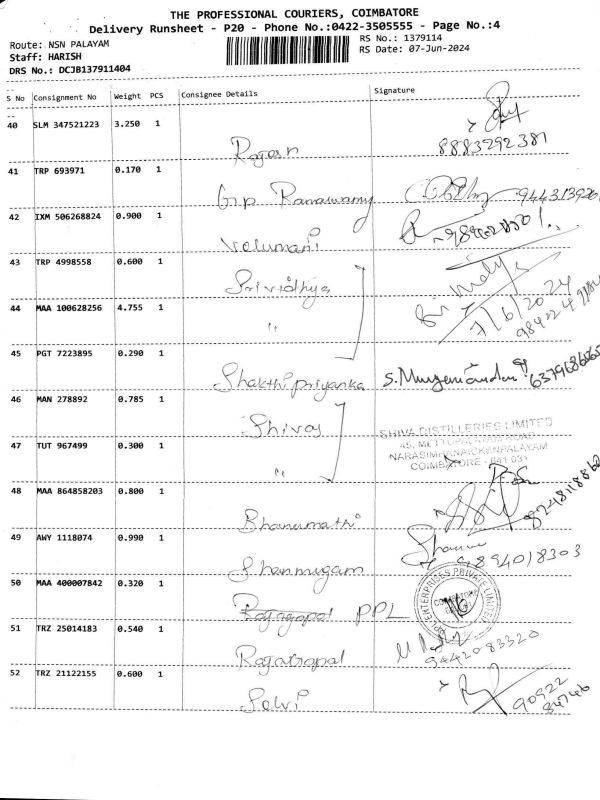 THE PROFESSIONAL COURIERS, COIMBATORE
Delivery Runsheet - P20 - Phone No.:0422-3505555 - Page No.:4
Route: NSN PALAYAM
RS No.: 1379114
Staff: HARISH
RS Date: 07-Jun-2024
DRS No.: DCJB137911404
S No Consignment No Weight PCS Consignee Details Signature
40 SLM 347521223 3.250 1 Rajesh 8883292381
41 TRP 693971 0.170 1 Grp Ramaswamy
42 IXM 506268824 0.900 1 Velumani
43 TRP 4998558 0.600 1 Srividhya
44 MAA 100628256 4.755 1 " 7/6/2024
45 PGT 7223895 0.290 1 Shakthipriyanka S. Murganandan
46 MAN 278892 0.785 1 Shivas
SHIVA DISTILLERIES LIMITED
45, METTUPALAYAM ROAD
47 TUT 967499 0.300 1 " NARASIMHANAICKENPALAYAM
COIMBATORE - 641 031
48 MAA 864858203 0.800 1 Bhanumathi 8248118860
49 AWY 1118074 0.990 1 Shanmugam 9894018303
50 MAA 400007842 0.320 1 Rajagopal PPL
PPL ENTERPRISES PRIVATE LIMITED
COIMBATORE
51 TRZ 25014183 0.540 1 Rajagopal 9442083320
52 TRZ 21122155 0.600 1 Selvi 90922
84746